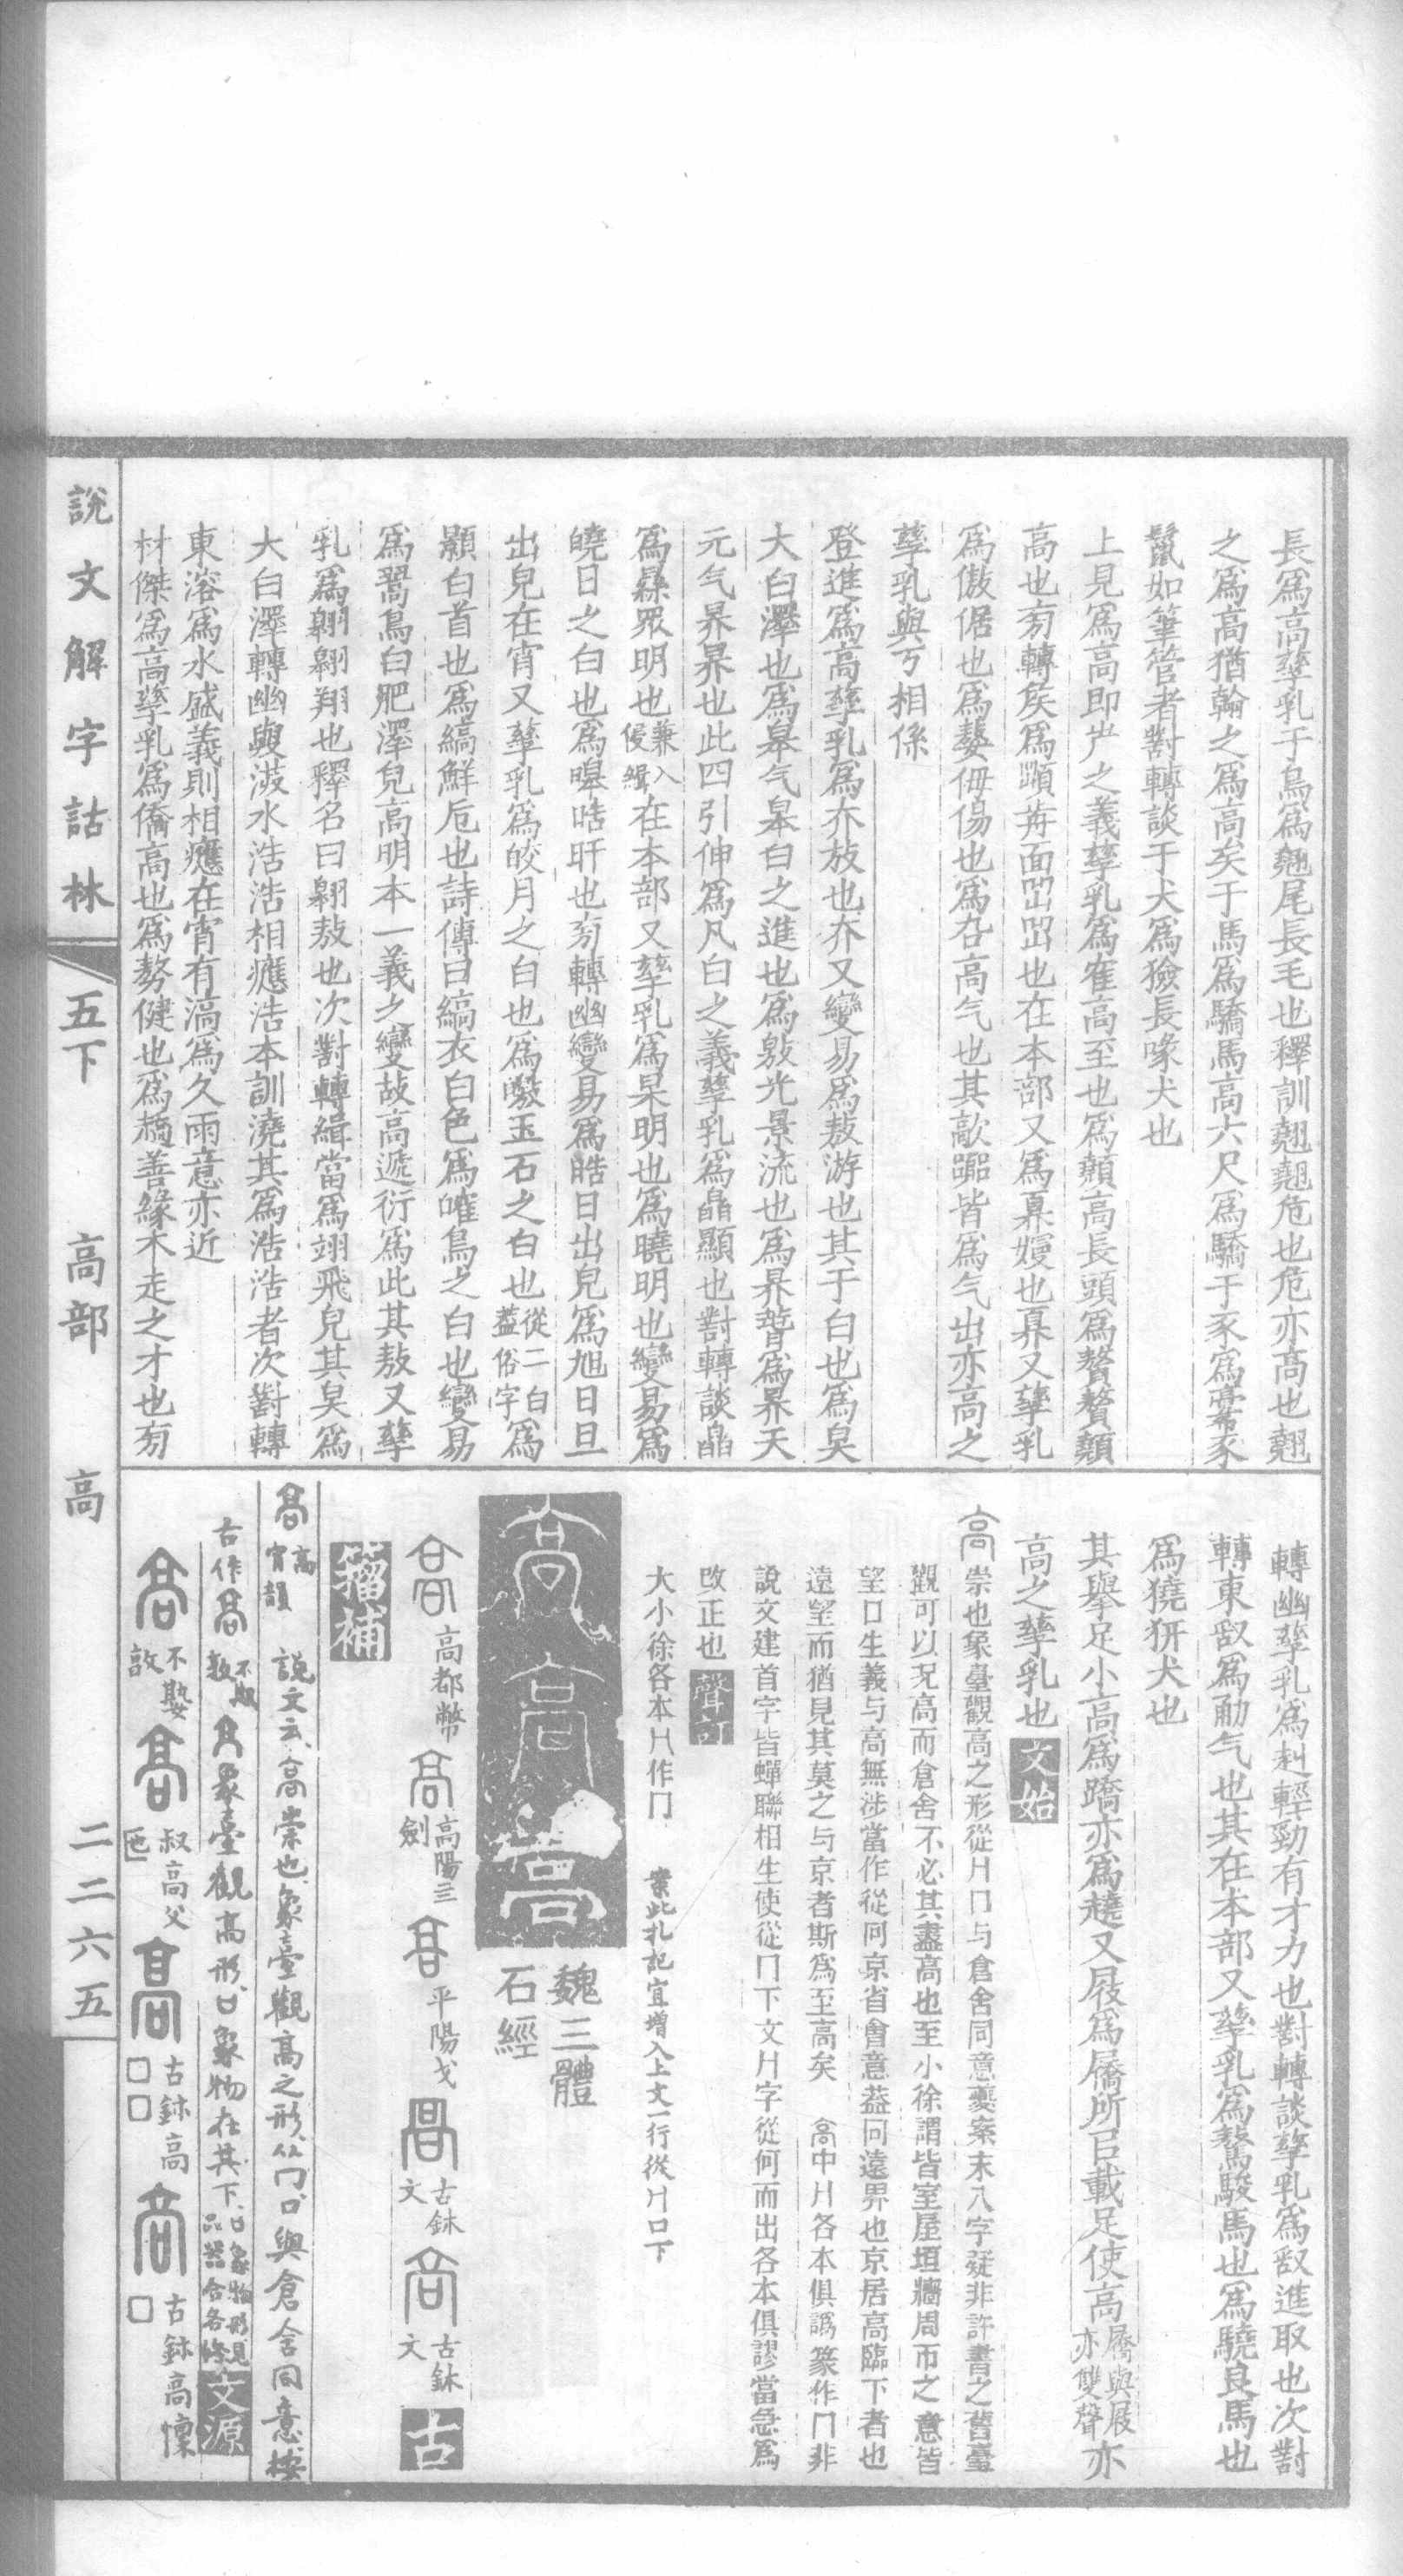 長爲高孳乳于鳥爲翹尾長毛也釋訓翹翹危也危亦高也翹
之爲高猶翰之爲高矣于馬爲驕馬高六尺爲驕于豕爲豪豕
鬣如筆管者對轉談于犬爲獫長喙犬也
上見爲高即屵之義孳乳爲隺高至也爲顤高長頭爲贅贅顤
高也旁轉矦爲頭前面岊岊也在本部又爲嫚也又孳乳
爲傲倨也爲嫯侮傷也爲高气也其歊嚻皆爲气出亦高之
孳乳與丂相係
登進爲高孳乳爲夰放也夰又變易爲敖游也其于白也爲臭
大白澤也爲皋气皋白之進也爲敫光景流也爲昦昦天
元气昦昦也此四引伸爲凡白之義孳乳爲皛顯也對轉談皛
爲㬎眾明也兼入侵緝在本部又孳乳爲杲明也爲曉明也變易爲
皢日之白也爲皞晧旰也旁轉幽變易爲晧日出皃爲旭日旦
出皃在宵又孳乳爲皎月之白也爲皦玉石之白也從二白蓋俗字爲
顥白首也爲縞鮮卮也詩傳曰縞衣白色爲㿥鳥之白也變易
爲翯鳥白肥澤皃高明本一義之變故高遞衍爲此其敖又孳
乳爲翱翱翔也釋名曰翱敖也次對轉緝當爲翊飛皃其臭爲
大白澤轉幽與浩水浩浩相應浩本訓澆其爲浩浩者次對轉
東溶爲水盛義則相應在宵有滈爲久雨意亦近
材傑爲高孳乳爲僑高也爲勢健也爲趫善緣木走之才也旁
轉幽孳乳爲赳輕勁有才力也對轉談孳乳爲敢進取也次對
轉東敢爲勈气也其在本部又孳乳爲驁駿馬也爲驍良馬也
爲獟豣犬也
其舉足小高爲蹻亦爲趬又屐爲屩所㠯載足使高屩與屐亦雙聲亦
高之孳乳也文始
高崇也象臺觀高之形從冂口与倉舍同意夔案末八字疑非許書之舊臺
觀可以况高而倉舍不必其盡高也至小徐謂皆室屋垣牆周帀之意皆
望口生義与高無涉當作從冋京省會意葢冋遠界也京居高臨下者也
遠望而猶見其莫之与京者斯爲至高矣 高中各本俱譌篆作冂非
說文建首字皆蟬聯相生使從冂下文字從何而出各本俱謬當急爲
改正也聲訂
大小徐各本作冂 業此札記宜增入上文一行從口下
魏三體
石經
高都幣 高陽三劍 平陽戈 古鉥文 古鉥文 古
籀補
高高宵韻 說文云高崇也象臺觀高之形从冂口與倉舍同意按
古作高不㜽敦象臺觀高形口象物在其下口象物形見品器合各條文源
不㜽敦 叔高父匜 古鉥高□□ 古鉥高慄□
說文解字詁林 五下 高部 高 二二六五